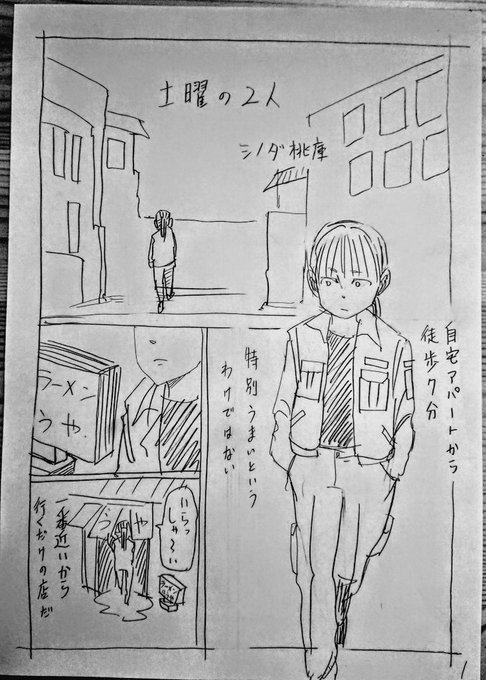 土曜の2人
シノダ桃庫
自宅アパートから
徒歩7分
特別うまいという
わけではない
ラーメン
うや
うや
いらっ
しゃーい
一番近いから
行くだけの店だ
1